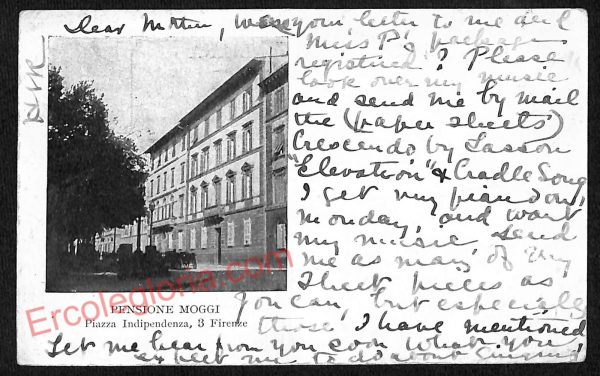 Dear Mother, were your letter to me and
Miss P's packages
registered? Please
look over my music
and send me by mail
the (paper sheets)
Crescendo by Lasson
"Elevation" & Cradle Song
I get my piano on,
Monday, and want
my music. Send
me as many of my
sheet pieces as
you can, but especially
those I have mentioned
Let me hear from you soon what you
expect me to do about
PENSIONE MOGGI
Piazza Indipendenza, 3 Firenze
Ercolegloria.com